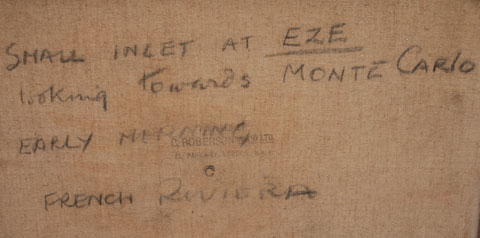 SMALL INLET AT EZE
looking towards MONTE CARLO
EARLY MORNING
C. ROBERSON
FRENCH RIVIERA